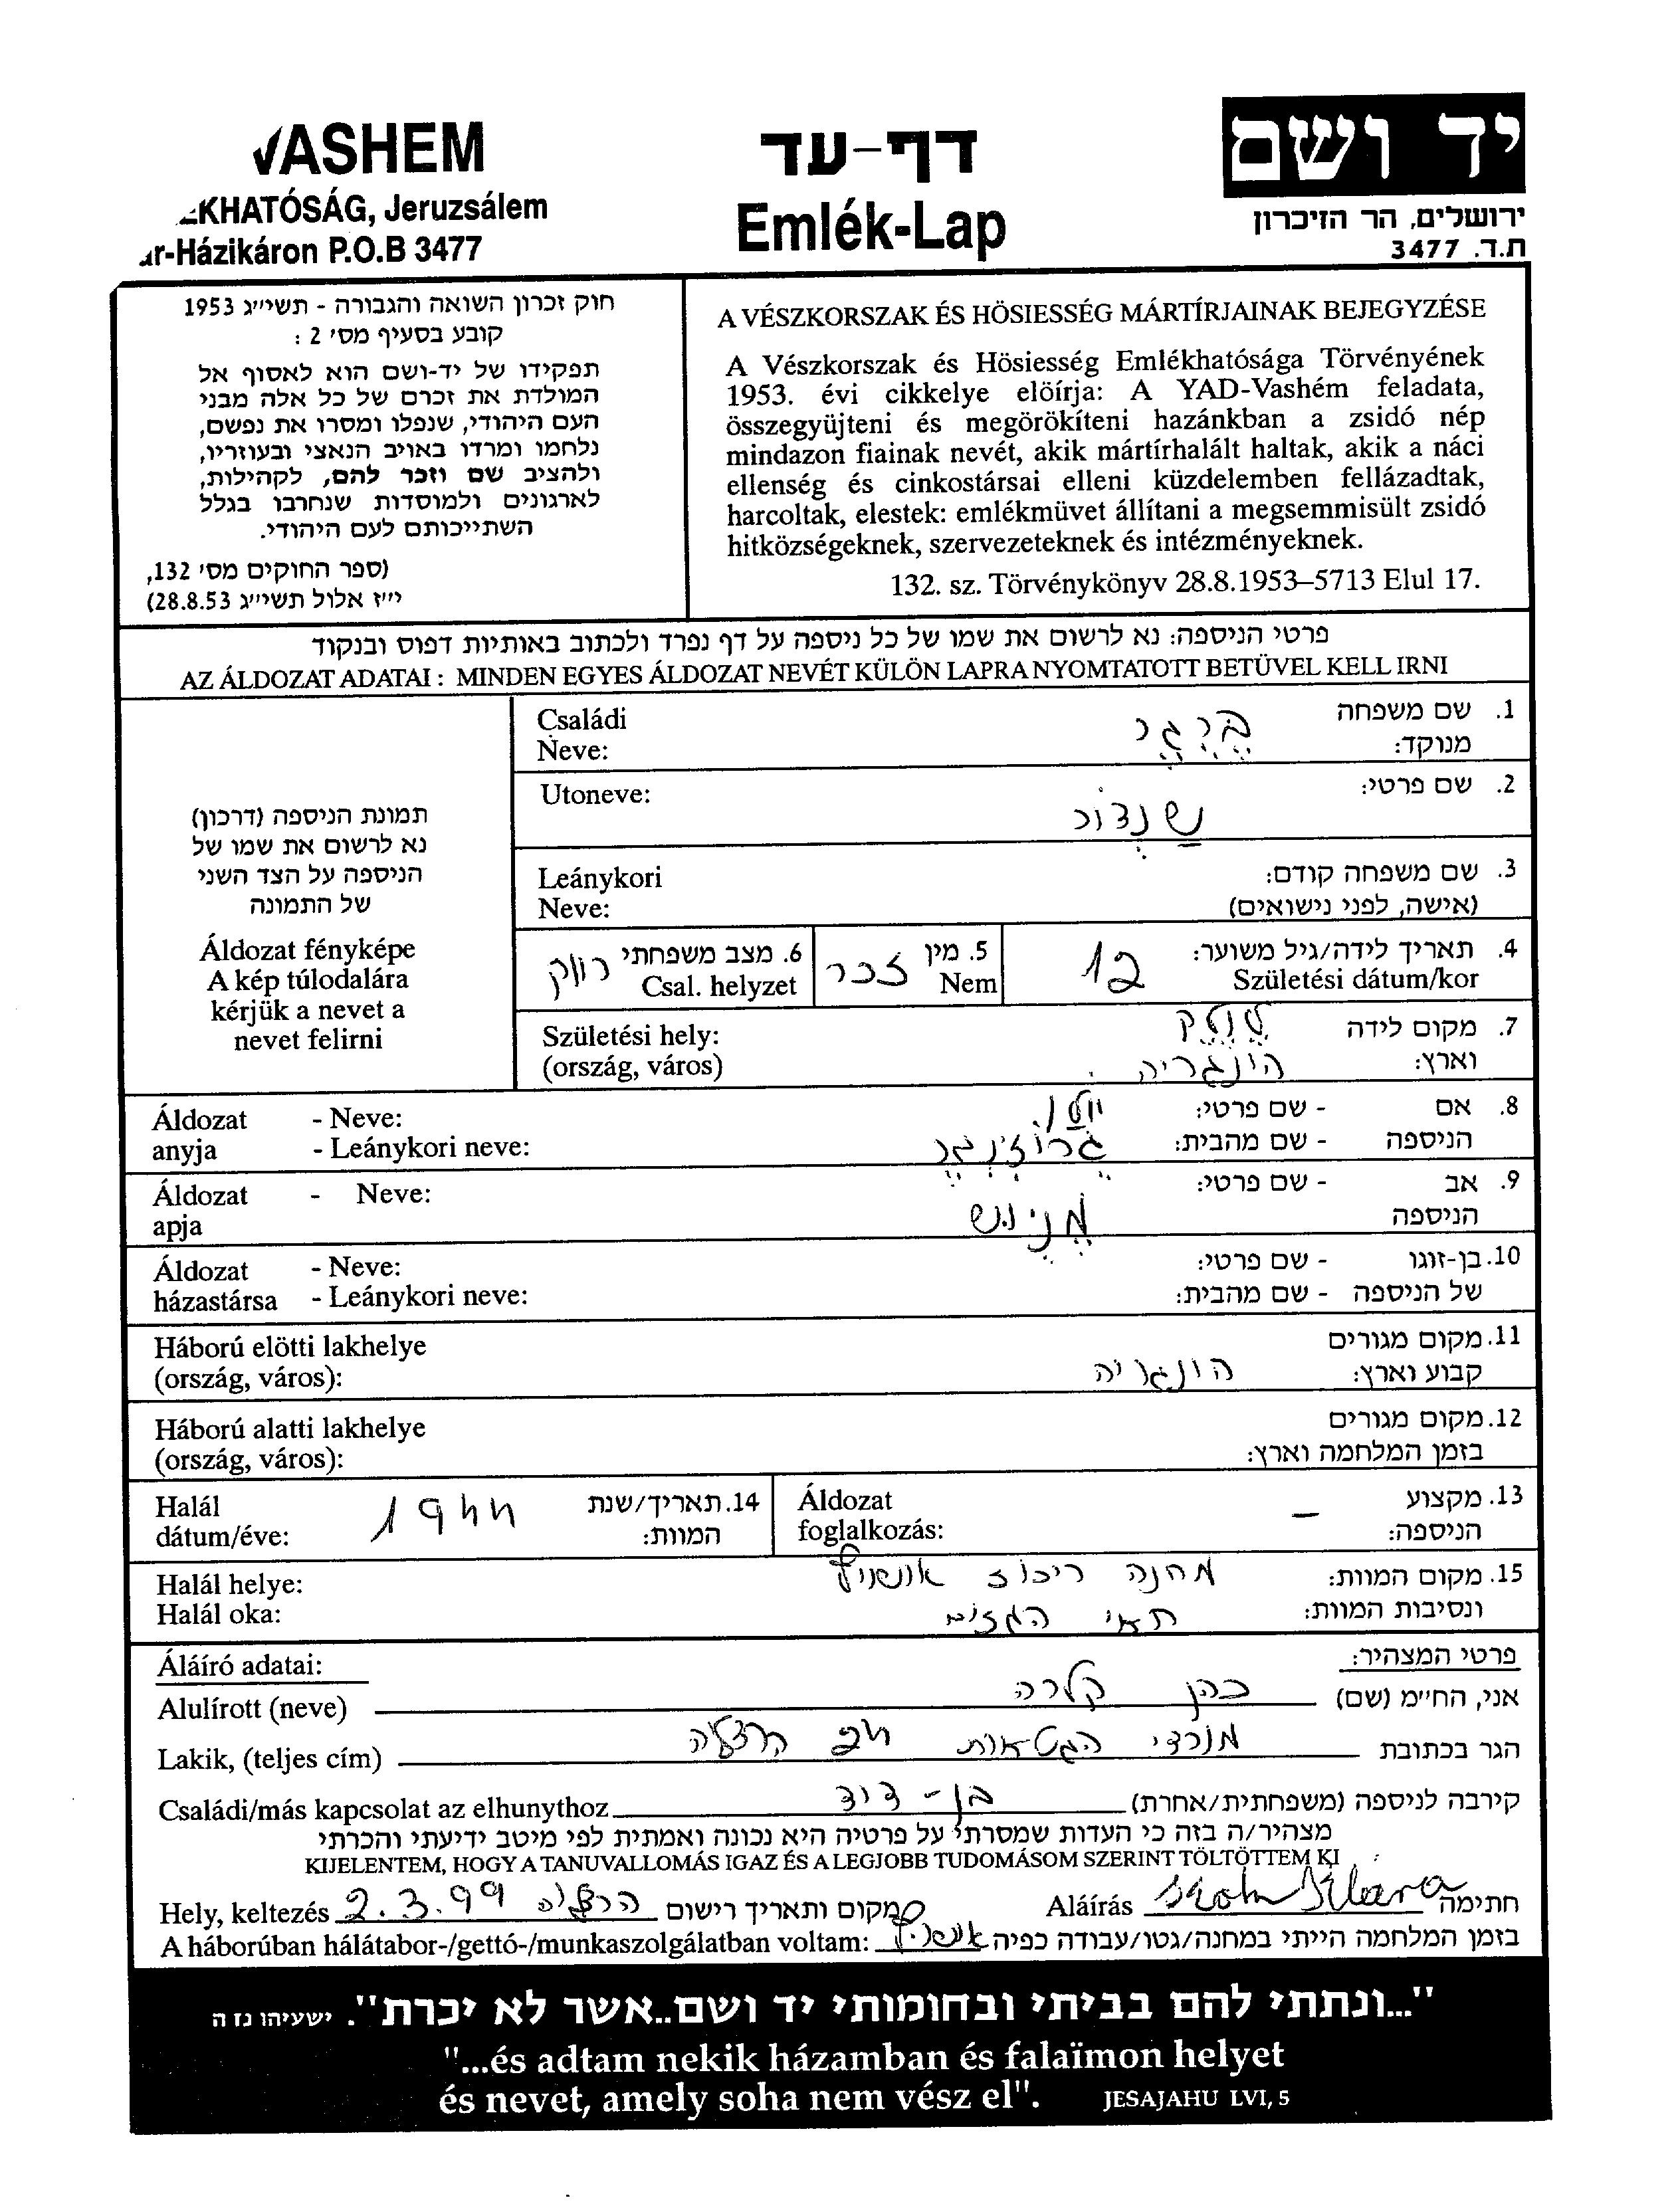 VASHEM
דף-עד
יד ושם
KHATÓSÁG, Jeruzsálem
Emlék-Lap
ירושלים, הר הזיכרון
r-Házikáron P.O.B 3477
ת.ד. 3477
חוק זכרון השואה והגבורה - תשי״ג 1953
קובע בסעיף מס׳ 2 :
תפקידו של יד-ושם הוא לאסוף אל
המולדת את זכרם של כל אלה מבני
העם היהודי, שנפלו ומסרו את נפשם,
נלחמו ומרדו באויב הנאצי ובעוזריו,
ולהציב שם וזכר להם, לקהילות,
לארגונים ולמוסדות שנחרבו בגלל
השתייכותם לעם היהודי.
(ספר החוקים מס׳ 132,
י״ז אלול תשי״ג 28.8.53)
A VÉSZKORSZAK ÉS HÖSIESSÉG MÁRTÍRJAINAK BEJEGYZÉSE
A Vészkorszak és Hösiesség Emlékhatósága Törvényének
1953. évi cikkelye elöírja: A YAD-Vashém feladata,
összegyüjteni és megörökíteni hazánkban a zsidó nép
mindazon fiainak nevét, akik mártírhalált haltak, akik a náci
ellenség és cinkostársai elleni küzdelemben fellázadtak,
harcoltak, elestek: emlékmüvet állítani a megsemmisült zsidó
hitközségeknek, szervezeteknek és intézményeknek.
132. sz. Törvénykönyv 28.8.1953–5713 Elul 17.
פרטי הניספה: נא לרשום את שמו של כל ניספה על דף נפרד ולכתוב באותיות דפוס ובנקוד
AZ ÁLDOZAT ADATAI : MINDEN EGYES ÁLDOZAT NEVÉT KÜLÖN LAPRA NYOMTATOTT BETÜVEL KELL IRNI
תמונת הניספה (דרכון)
נא לרשום את שמו של
הניספה על הצד השני
של התמונה
Áldozat fényképe
A kép túlodalára
kérjük a nevet a
nevet felirni
1. שם משפחה
מנוקד:
Családi
Neve:
2. שם פרטי: שנדור
Utoneve:
3. שם משפחה קודם:
(אישה, לפני נישואים)
Leánykori
Neve:
4. תאריך לידה/גיל משוער: 12
Születési dátum/kor
5. מין זכר
Nem
6. מצב משפחתי רווק
Csal. helyzet
7. מקום לידה
וארץ: הונגריה
Születési hely:
(ország, város)
8. אם - שם פרטי:
הניספה - שם מהבית:
Áldozat - Neve:
anyja - Leánykori neve:
9. אב - שם פרטי:
הניספה
Áldozat - Neve:
apja
10. בן-זוגו - שם פרטי:
של הניספה - שם מהבית:
Áldozat - Neve:
házastársa - Leánykori neve:
11. מקום מגורים
קבוע וארץ: הונגריה
Háború elötti lakhelye
(ország, város):
12. מקום מגורים
בזמן המלחמה וארץ:
Háború alatti lakhelye
(ország, város):
13. מקצוע
הניספה: –
Áldozat
foglalkozás:
14. תאריך/שנת
המוות: 1944
Halál
dátum/éve:
15. מקום המוות: מחנה ריכוז אושויץ
ונסיבות המוות: תאי הגזים
Halál helye:
Halál oka:
פרטי המצהיר:
Áláíró adatai:
אני, הח״מ (שם) כהן קלרה
Alulírott (neve)
הגר בכתובת מורדי הגטאות הרצליה
Lakik, (teljes cím)
קירבה לניספה (משפחתית/אחרת) בן-דוד
Családi/más kapcsolat az elhunythoz
מצהיר/ה בזה כי העדות שמסרתי על פרטיה היא נכונה ואמתית לפי מיטב ידיעתי והכרתי
KIJELENTEM, HOGY A TANUVALLOMÁS IGAZ ÉS A LEGJOBB TUDOMÁSOM SZERINT TÖLTÖTTEM KI
Hely, keltezés 2.3.99 הרצליה מקום ותאריך רישום
Aláírás Klara חתימה
A háborúban hálátabor-/gettó-/munkaszolgálatban voltam:
בזמן המלחמה הייתי במחנה/גטו/עבודה כפיה אושויץ
"...ונתתי להם בביתי ובחומותי יד ושם..אשר לא יכרת". ישעיהו נז ה
"...és adtam nekik házamban és falaïmon helyet
és nevet, amely soha nem vész el". JESAJAHU LVI, 5